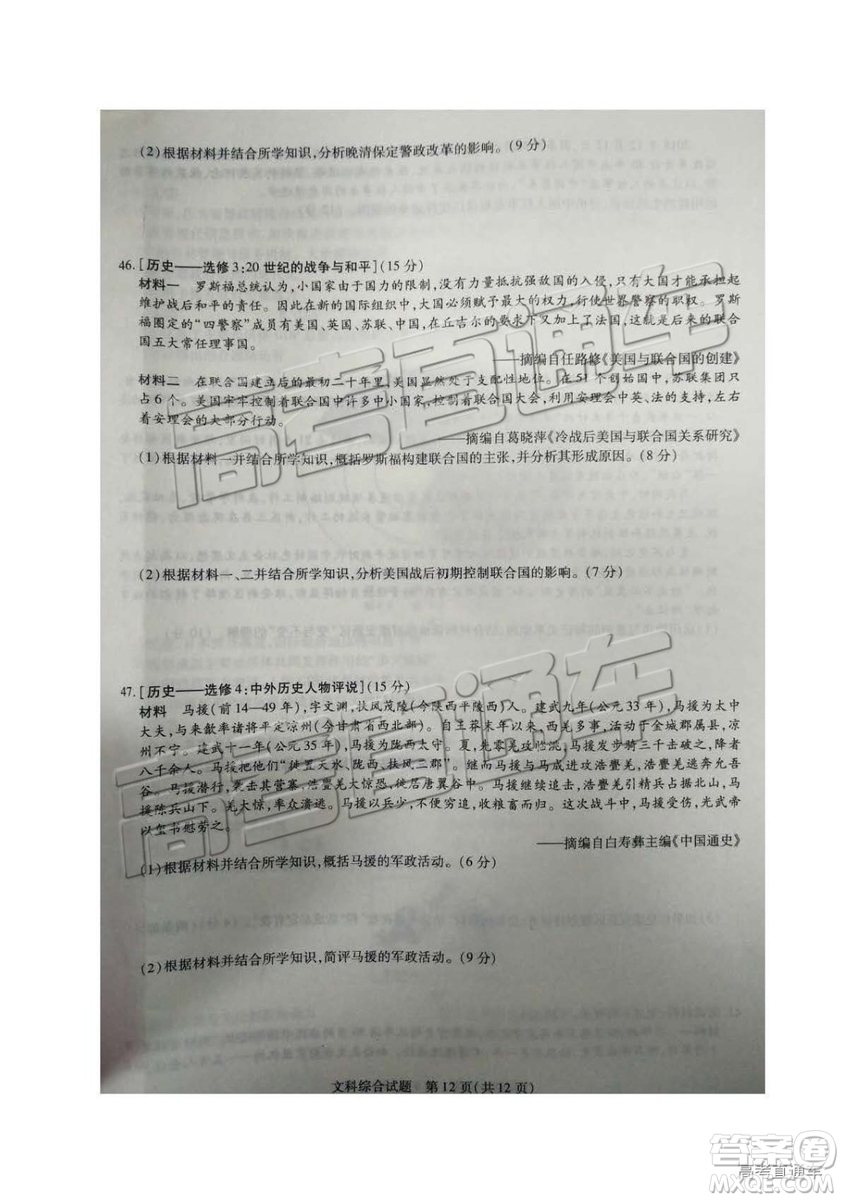 (2)根据材料并结合所学知识,分析晚清保定警政改革的影响。(9分)
46.[历史——选修3:20世纪的战争与和平](15分)
材料一 罗斯福总统认为,小国家由于国力的限制,没有力量抵抗强敌国的入侵,只有大国才能承担起
维护战后和平的责任。因此在新的国际组织中,大国必须赋予最大的权力,行使世界警察的职权。罗斯
福圈定的“四警察”成员有美国、英国、苏联、中国,在丘吉尔的要求下又加上了法国,这就是后来的联合
国五大常任理事国。
——摘编自任路修《美国与联合国的创建》
材料二 在联合国建立后的最初二十年里,美国显然处于支配性地位。在51个创始国中,苏联集团只
占6个。美国牢牢控制着联合国中许多中小国家,控制着联合国大会,利用安理会中英、法的支持,左右
着安理会的大部分行动。
——摘编自葛晓萍《冷战后美国与联合国关系研究》
(1)根据材料一并结合所学知识,概括罗斯福构建联合国的主张,并分析其形成原因。(8分)
(2)根据材料一、二并结合所学知识,分析美国战后初期控制联合国的影响。(7分)
47.[历史——选修4:中外历史人物评说](15分)
材料 马援(前14—49年),字文渊,扶风茂陵(今陕西平陵西)人。建武九年(公元33年),马援为太中
大夫,与来歙率诸将平定凉州(今甘肃省西北部)。自王莽末年以来,西羌多事,活动于金城郡属县,凉
州不宁。建武十一年(公元35年),马援为陇西太守。夏,先零羌攻临洮,马援发步骑三千击破之,降者
八千余人。马援把他们“徙置天水、陇西、扶风二郡”。继而马援与马成进攻浩亹羌,浩亹羌逃奔允吾
谷。马援潜行,袭击其营寨,浩亹羌大惊恐,徙居唐翼谷。马援继续追击,浩亹羌引精兵占据北山,马
援陈兵山下。羌大惊,率众溃逃。马援以兵少,不便穷追,收粮畜而归。这次战斗中,马援受伤,光武帝
以玺书慰劳之。
——摘编自白寿彝主编《中国通史》
(1)根据材料并结合所学知识,概括马援的军政活动。(6分)
(2)根据材料并结合所学知识,简评马援的军政活动。(9分)
文科综合试题 第12页(共12页)
高考直通车
高考直通车
答案圈
高考直通车
MXQE.COM